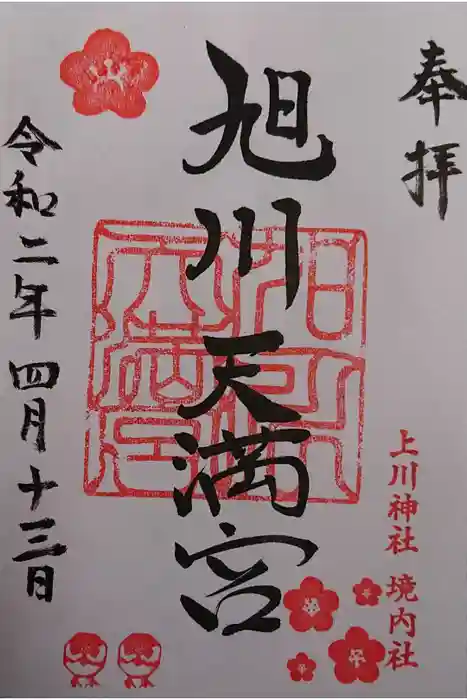 奉拝
上川神社 境内社
旭川天満宮
令和二年四月十三日